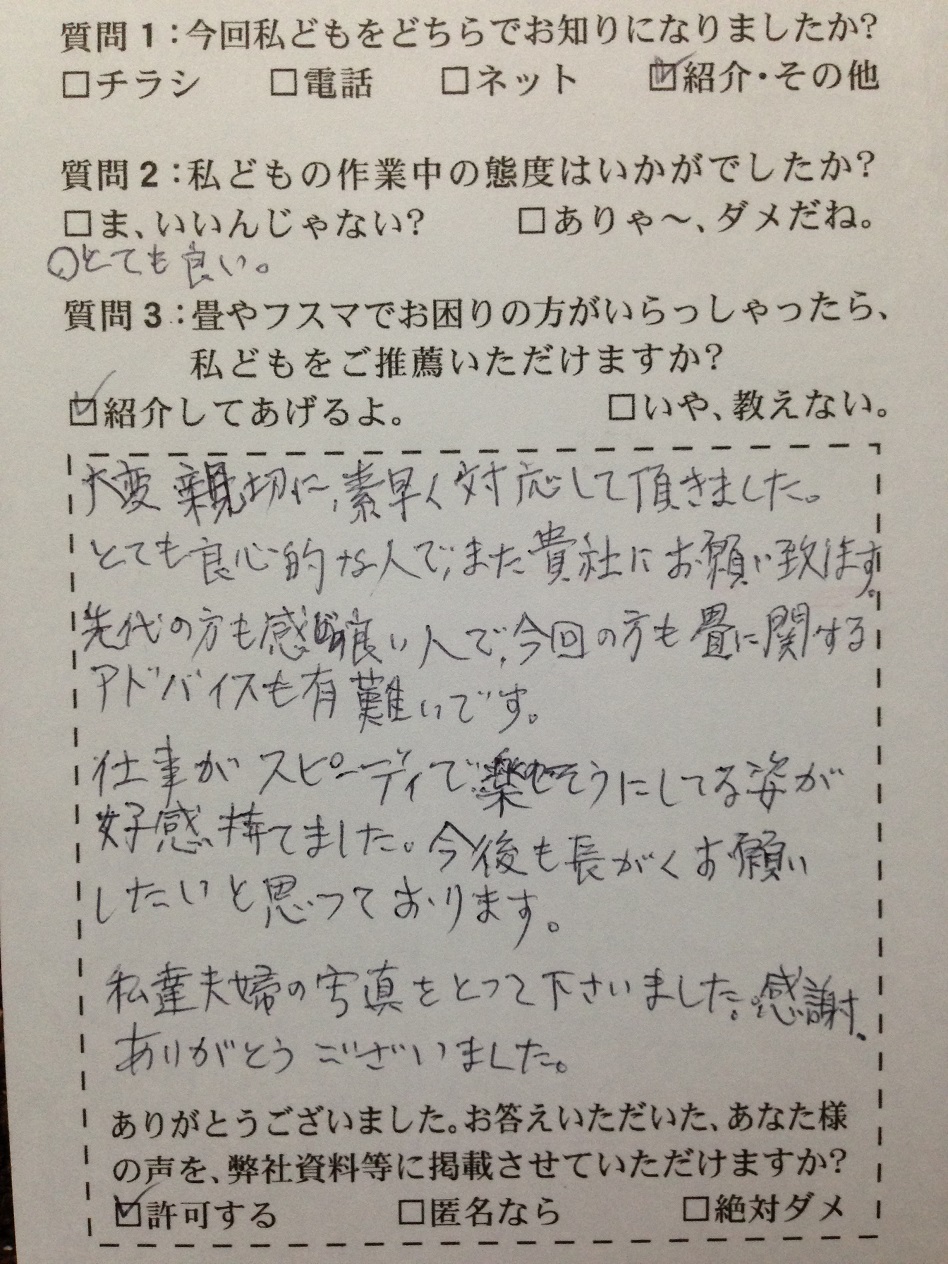 質問1:今回私どもをどちらでお知りになりましたか?
□チラシ □電話 □ネット ☑紹介・その他
質問2:私どもの作業中の態度はいかがでしたか?
□ま、いいんじゃない? □ありゃ〜、ダメだね。
とても良い。
質問3:畳やフスマでお困りの方がいらっしゃったら、
私どもをご推薦いただけますか?
☑紹介してあげるよ。 □いや、教えない。
大変親切に、素早く対応して頂きました。
とても良心的な人で、また貴社にお願い致ます。
先代の方も感じ良い人で、今回の方も畳に関する
アドバイスも有難いです。
仕事がスピーディで、楽しそうにしてる姿が
好感持てました。今後も長がくお願い
したいと思っております。
私達夫婦の写真をとって下さいました。感謝、
ありがとうございました。
ありがとうございました。お答えいただいた、あなた様
の声を、弊社資料等に掲載させていただけますか?
☑許可する □匿名なら □絶対ダメ